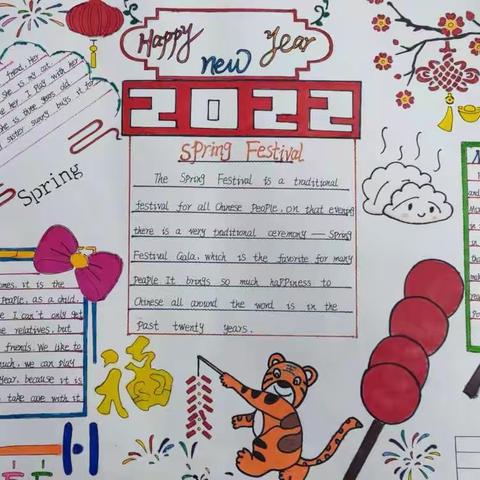 Happy new Year
2022
Spring Festival
The Spring Festival is a traditional
festival for all Chinese people, on that evening
there is a very traditional ceremony — Spring
Festival Gala, which is the favorite for many
people It brings so much happiness to
Chinese all around the word is in the
past twenty years.
friend. Her
she is my cat
her. I play with her
she is three years old
sister sunny buys it for
Spring
comes, it is the
people, as a child,
I can't only get
relatives, but
friends. We like to
much, we can play
year, because it is
take care with it
福